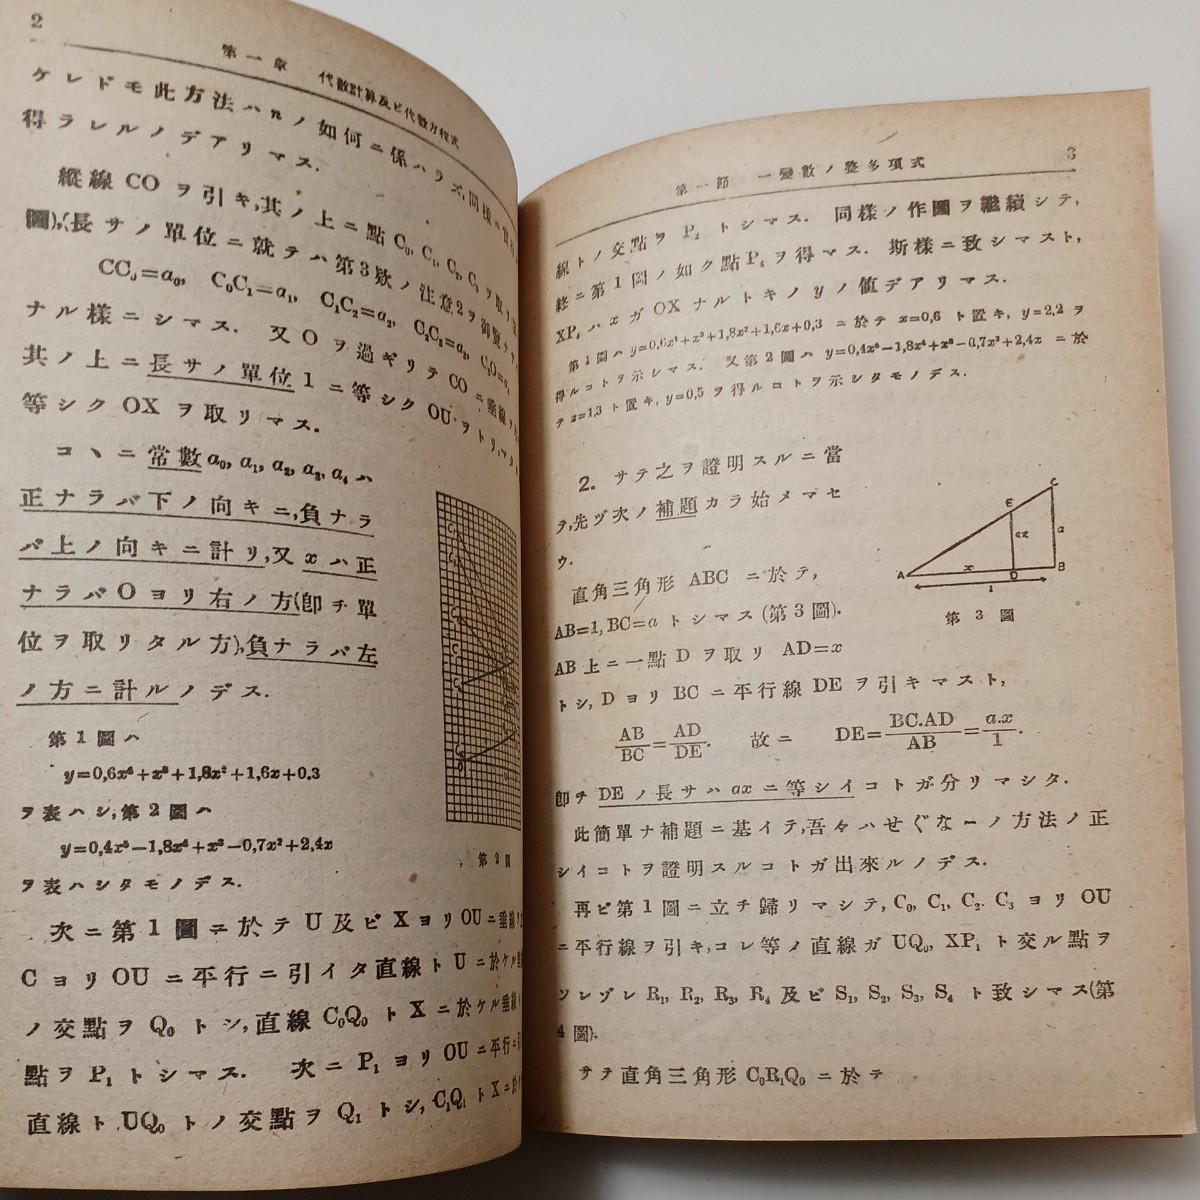 2
第一章 代數計算及ビ代數方程式
ケレドモ此方法ハnノ如何ニ係ハラズ,同樣ニ
得ラレルノデアリマス.
縱線 CO ヲ引キ,其ノ上ニ點 C₀, C₁, C₂, C₃ ヲ取リ
圖),(長サノ單位ニ就テハ第3欵ノ注意2ヲ御覽
CC₀=a₀, C₀C₁=a₁, C₁C₂=a₂, C₂C₃=a₃, C₃O=a₄
ナル樣ニシマス. 又 O ヲ過ギリテ CO ニ垂線ヲ
其ノ上ニ長サノ單位 1 ニ等シク OU ヲトリ,マタ
等シク OX ヲ取リマス.
コヽニ常數 a₀, a₁, a₂, a₃, a₄ ハ
正ナラバ下ノ向キニ,負ナラ
バ上ノ向キニ計リ,又 x ハ正
ナラバ O ヨリ右ノ方(卽チ單
位ヲ取リタル方),負ナラバ左
ノ方ニ計ルノデス.
第1圖ハ
y=0,6x⁴+x³+1,8x²+1,6x+0,3
ヲ表ハシ,第2圖ハ
y=0,4x⁵−1,8x⁴+x³−0,7x²+2,4x
ヲ表ハシタモノデス.
第2圖
次ニ第1圖ニ於テ U 及ビ X ヨリ OU ニ垂線ヲ
C ヨリ OU ニ平行ニ引イタ直線ト U ニ於ケル垂線
ノ交點ヲ Q₀ トシ,直線 C₀Q₀ ト X ニ於ケル垂線
點ヲ P₁ トシマス. 次ニ P₁ ヨリ OU ニ平行ニ
直線ト UQ₀ トノ交點ヲ Q₁ トシ, C₁Q₁ ト X ニ於
第一節 一變數ノ整多項式
3
線トノ交點ヲ P₂ トシマス. 同樣ノ作圖ヲ繼續シテ,
終ニ第1圖ノ如ク點 P₄ ヲ得マス. 斯樣ニ致シマスト,
XP₄ ハ x ガ OX ナルトキノ y ノ値デアリマス.
第1圖ハ y=0,6x⁴+x³+1,8x²+1,6x+0,3 ニ於テ x=0,6 ト置キ, y=2,2 ヲ
得ルコトヲ示シマス. 又第2圖ハ y=0,4x⁵−1,8x⁴+x³−0,7x²+2,4x ニ於
テ x=1,3 ト置キ, y=0,5 ヲ得ルコトヲ示シタモノデス.
2. サテ之ヲ證明スルニ當
ラ,先ヅ次ノ補題カラ始メマセ
ウ.
C
E
ax
a
A
x
D
B
1
第3圖
直角三角形 ABC ニ於テ,
AB=1, BC=a トシマス(第3圖).
AB 上ニ一點 D ヲ取リ AD=x
トシ, D ヨリ BC ニ平行線 DE ヲ引キマスト,
AB/BC=AD/DE. 故ニ DE=BC.AD/AB=a.x/1.
卽チ DE ノ長サハ ax ニ等シイコトガ分リマシタ.
此簡單ナ補題ニ基イテ,吾々ハせぐなーノ方法ノ正
シイコトヲ證明スルコトガ出來ルノデス.
再ビ第1圖ニ立チ歸リマシテ, C₀, C₁, C₂. C₃ ヨリ OU
ニ平行線ヲ引キ,コレ等ノ直線ガ UQ₀, XP₁ ト交ル點ヲ
ソレゾレ R₁, R₂, R₃, R₄ 及ビ S₁, S₂, S₃, S₄ ト致シマス(第
4圖).
サテ直角三角形 C₀R₁Q₀ ニ於テ